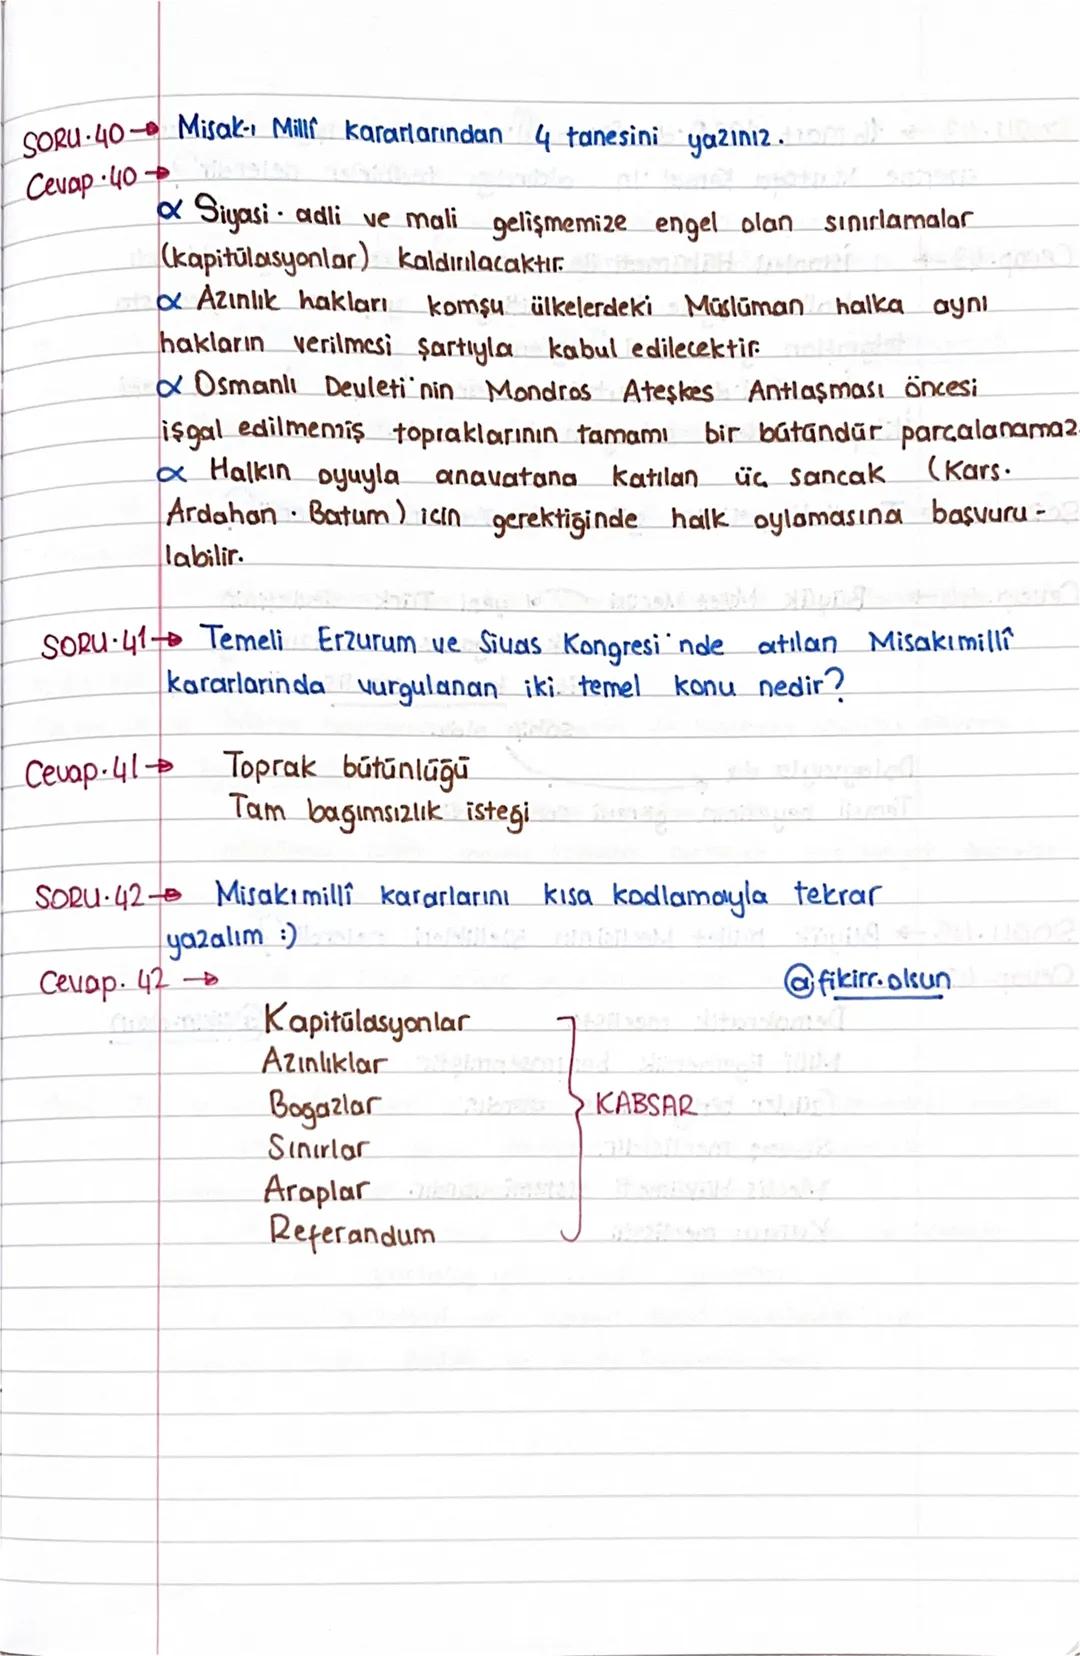 SORU.40→ Misak-ı Millî kararlarından 4 tanesini yazınız.
Cevap.40→
α Siyasi. adli ve mali gelişmemize engel olan sınırlamalar
(kapitülasyonlar) kaldırılacaktır.
α Azınlık hakları komşu ülkelerdeki Müslüman halka aynı
hakların verilmesi şartıyla kabul edilecektir.
α Osmanlı Devleti'nin Mondros Ateşkes Antlaşması öncesi
işgal edilmemiş topraklarının tamamı bir bütündür parçalanamaz.
α Halkın oyuyla anavatana katılan üç sancak (Kars.
Ardahan. Batum) için gerektiğinde halk oylamasına başvuru-
labilir.
SORU.41→ Temeli Erzurum ve Sivas Kongresi'nde atılan Misakımillî
kararlarında vurgulanan iki temel konu nedir?
Cevap.41→ Toprak bütünlüğü
Tam bağımsızlık isteği
SORU.42→ Misakımillî kararlarını kısa kodlamayla tekrar
yazalım :)
Cevap.42→
@fikirr.olsun
Kapitülasyonlar
Azınlıklar
Boğazlar
KABSAR
Sınırlar
Araplar
Referandum